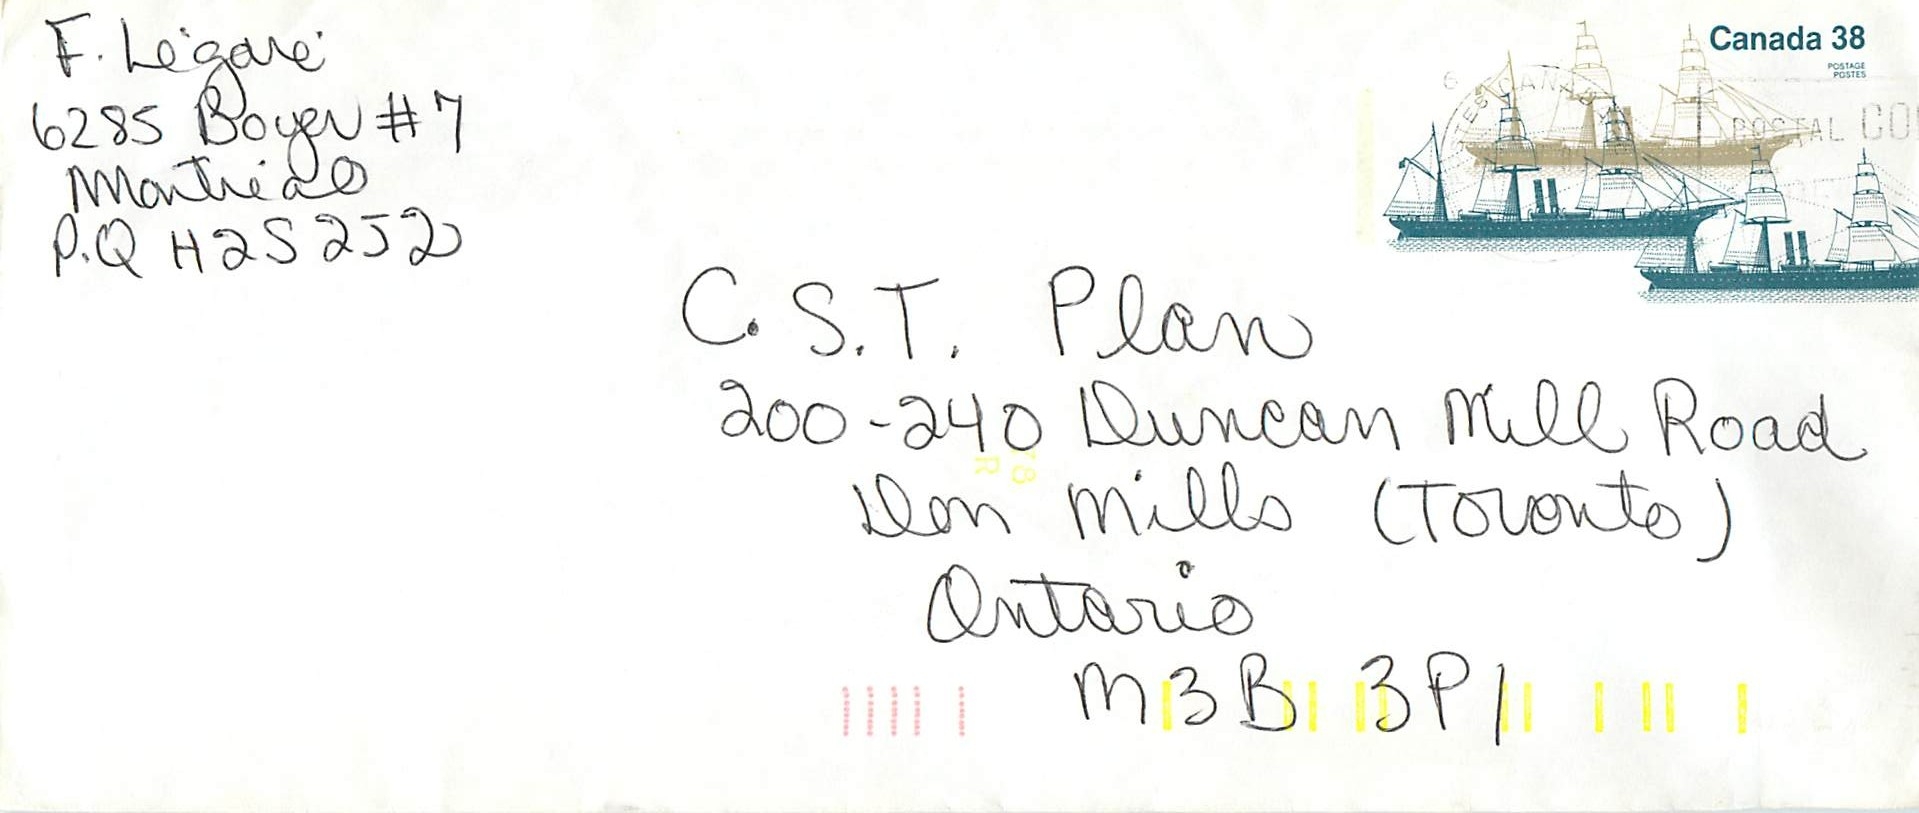 F. Légaré
6285 Boyer #7
Montréal
P.Q H2S 2J2
Canada 38
POSTAGE
POSTES
POSTAL CO
C.S.T. Plan
200-240 Duncan Mill Road
Don Mills (Toronto)
Ontario
M3B 3P1